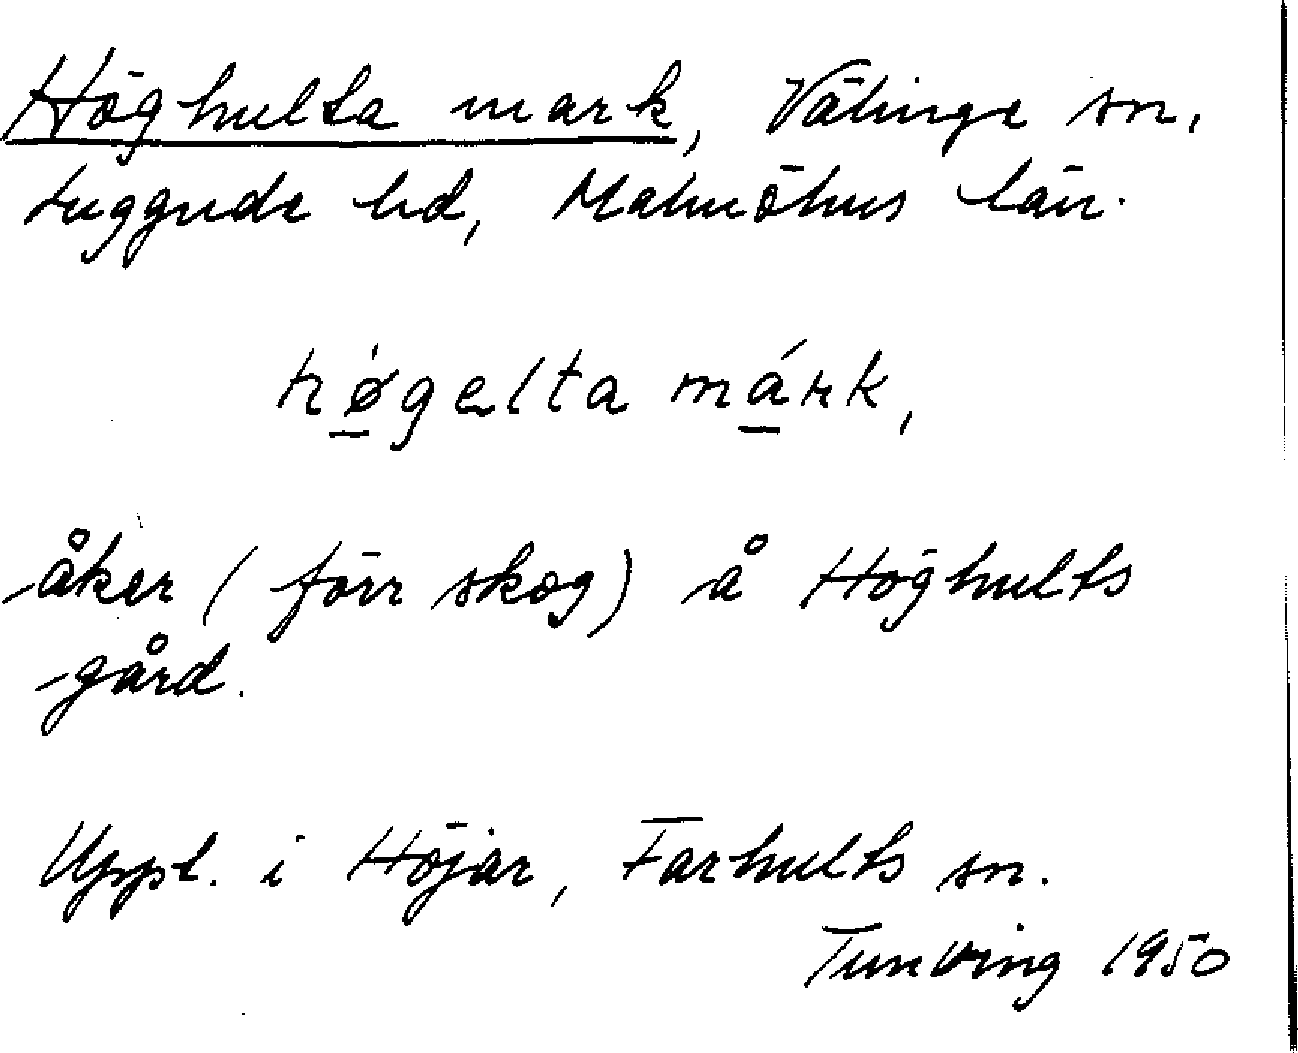 Höghulta mark, Välinge sn,
Luggude hd, Malmöhus län.
hø̱gelta má̱rk,
åker (förr skog) å Höghults
gård.
Uppt. i Höjar, Farhults sn.
Tunving 1950